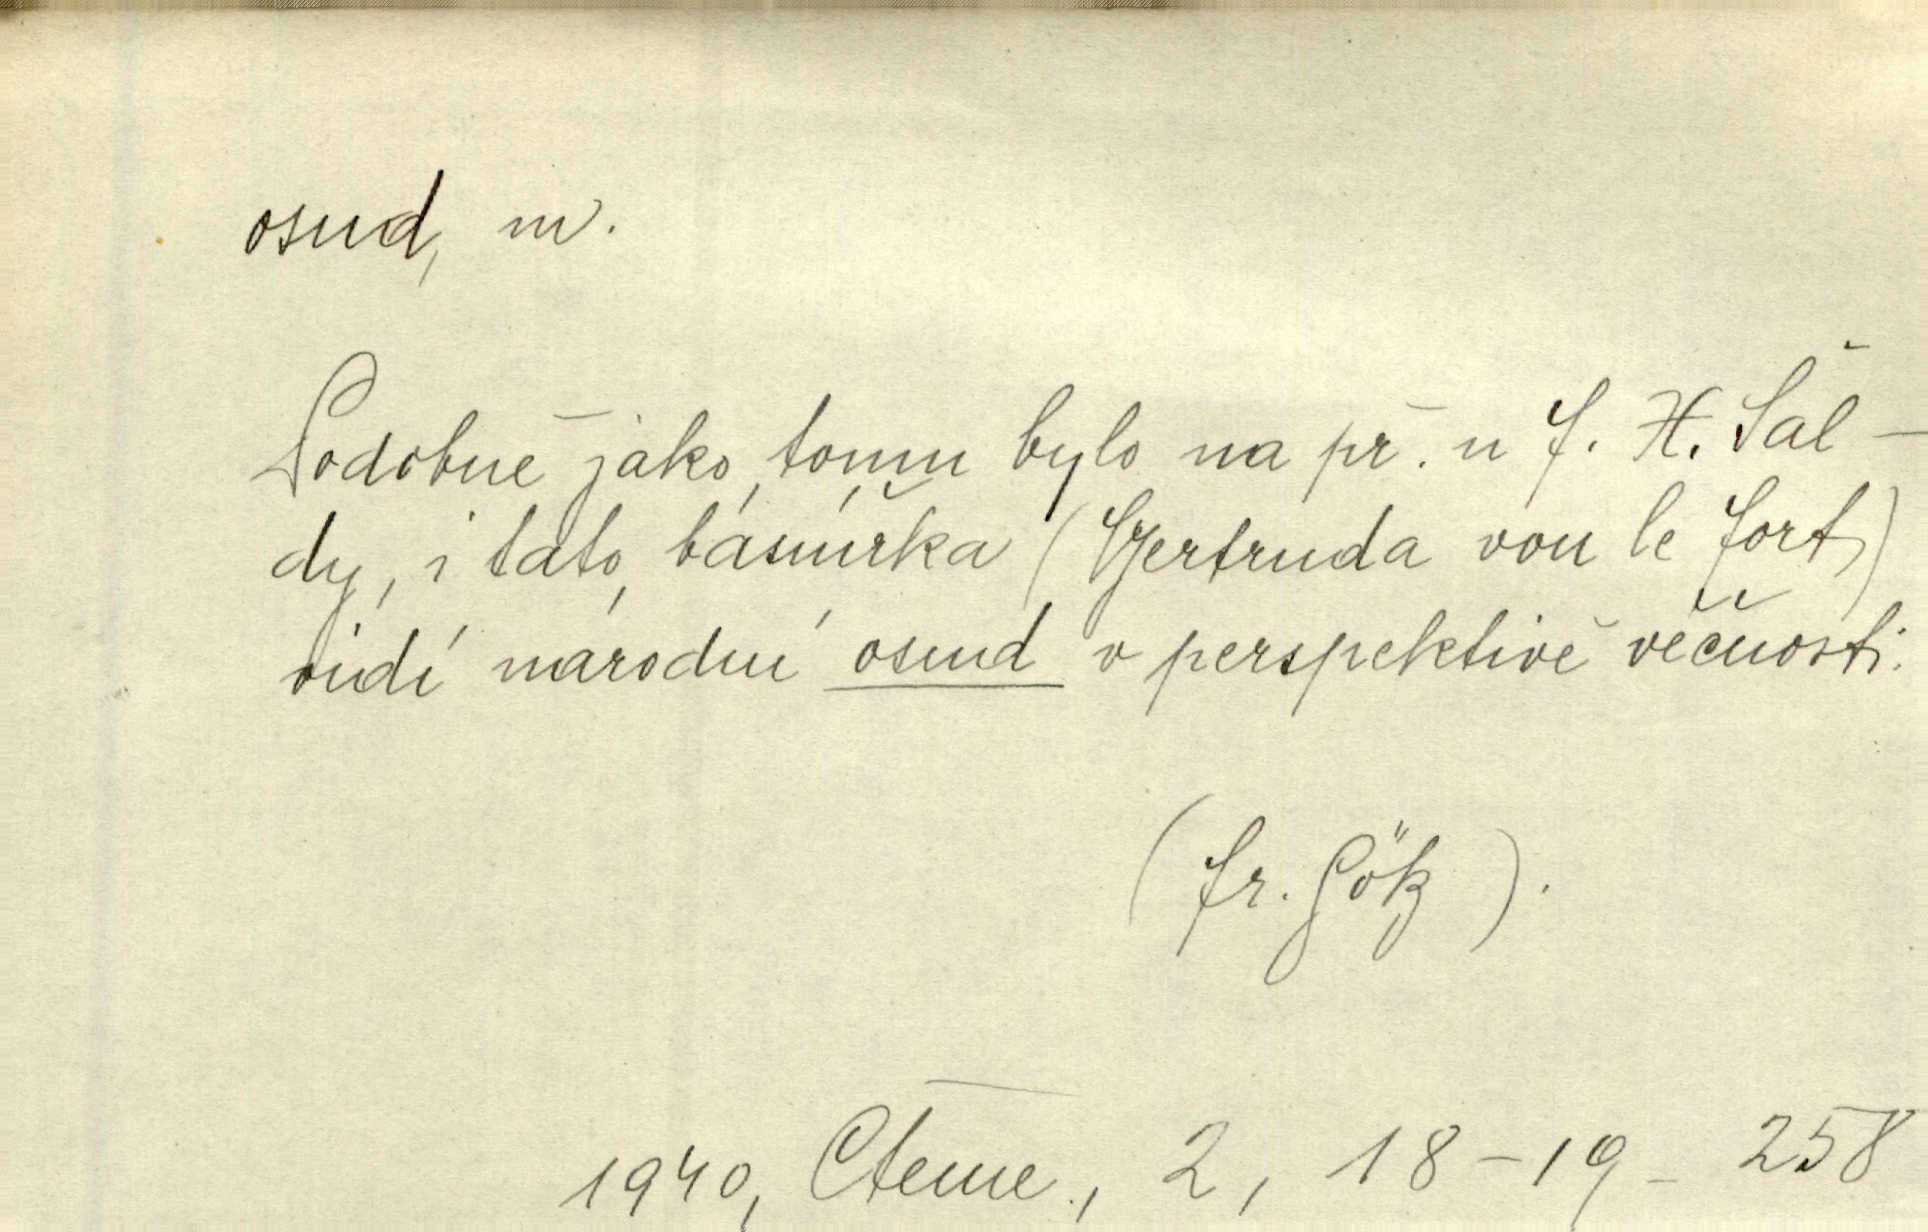 osud, m.
Podobně jako tomu bylo na př. u F. X. Šal-
dy, i tato básnířka (Gertruda von le Fort)
vidí národní osud v perspektivě věčnosti.
(Fr. Götz).
1940, Čteme, 2, 18-19 - 258